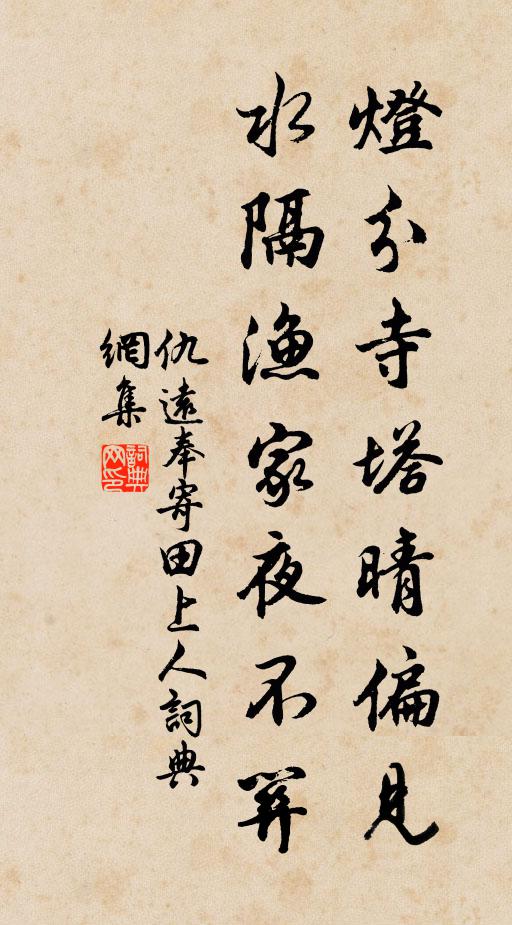 燈分寺塔晴偏見
水隔漁家夜不
仇遠奉寄田上人詞典
網集
詞典
网印